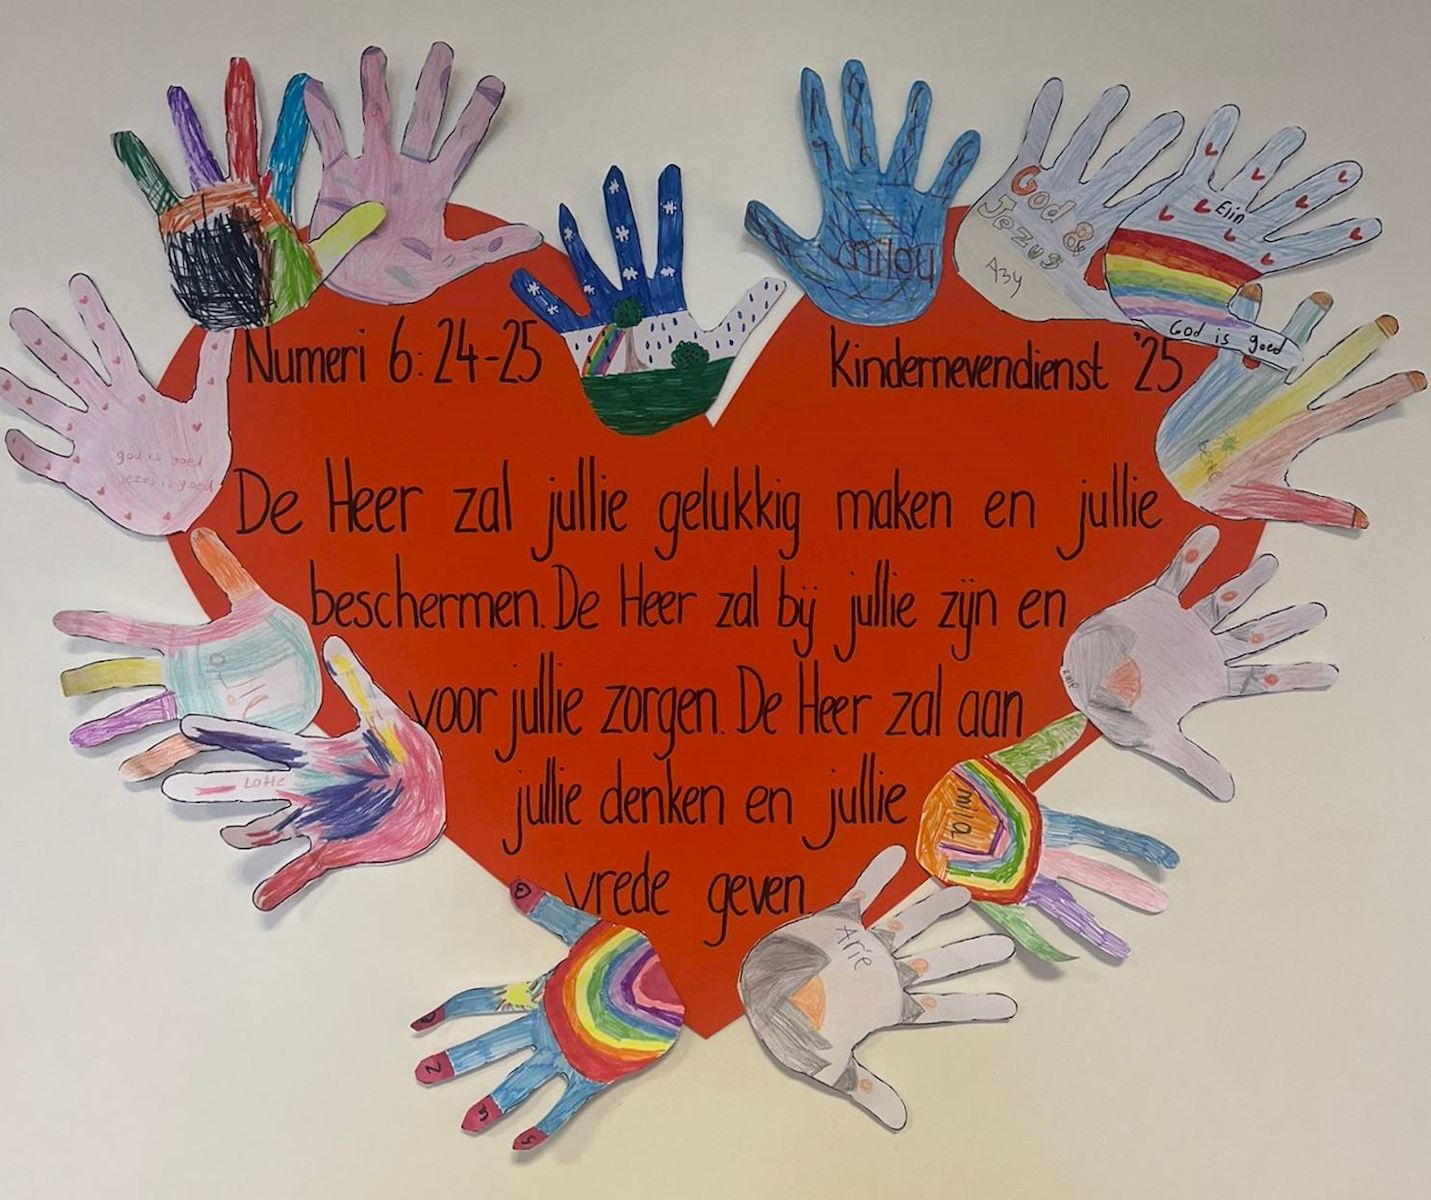 Numeri 6:24-25
Kindernevendienst '25
De Heer zal jullie gelukkig maken en jullie
beschermen. De Heer zal bij jullie zijn en
voor jullie zorgen. De Heer zal aan
jullie denken en jullie
vrede geven
milou
God &
Jezus
Azy
Elin
God is goed
god is goed
jezus is goed
Lotte
mila
Arie